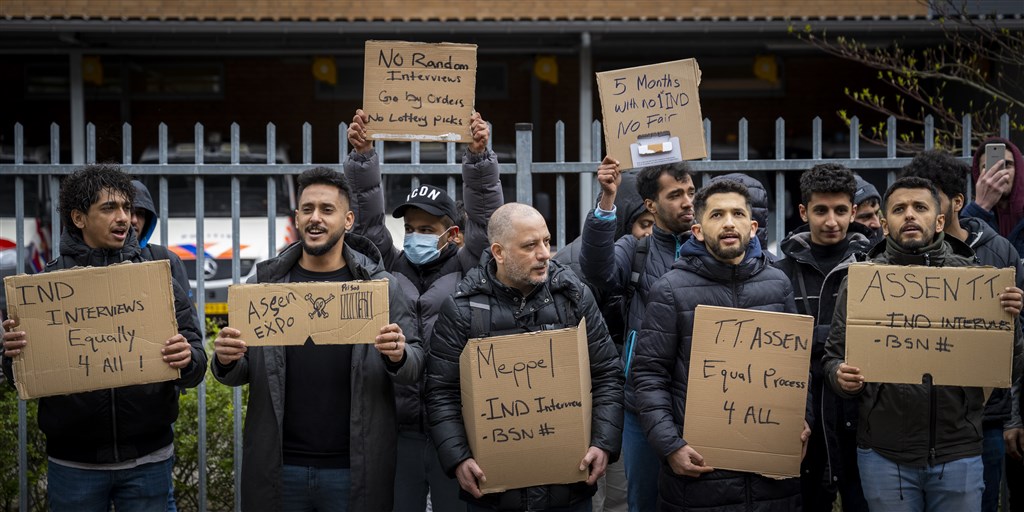 No Random
Interviews
Go by Orders
No Lottery picks
5 Months
with no IND
No Fair
ICON
IND
Interviews
Equally
4 All !
Assen
EXPO
Prison
Meppel
-IND Interview
-BSN #
T.T. Assen
Equal Process
4 ALL
ASSEN T.T
-IND INTERVIEWS
-BSN #